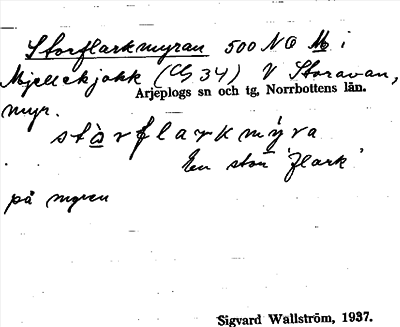 Storflarkmyran 500 NO M i
Mjellekjokk (Cg 34) V Storavan,
Arjeplogs sn och tg, Norrbottens län.
myr.
stàrflarkmýra
En stor 'flark'
på myren
Sigvard Wallström, 1937.